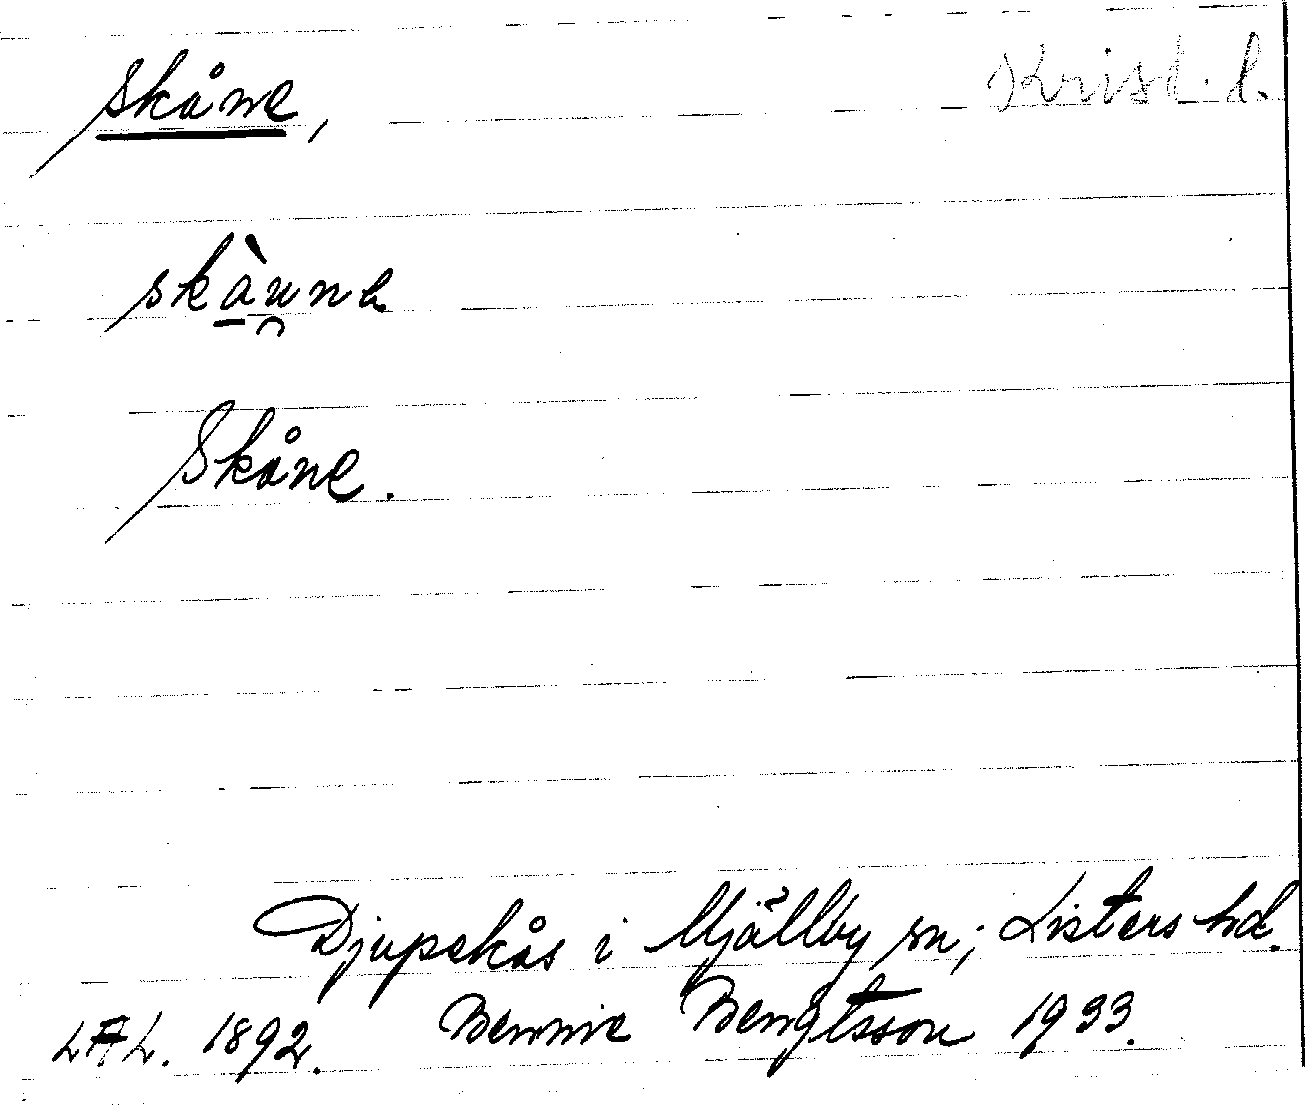 Skåne, Krist. l.
skàu̯nə
Skåne.
Djupekås i Mjällby sn; Listers hd.
LAL. 1892. Bennie Bengtsson 1933.